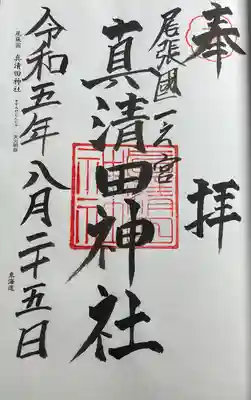 奉拝
尾張國一之宮
真清田神社
令和五年八月二十五日
尾張國 真清田神社
東海道